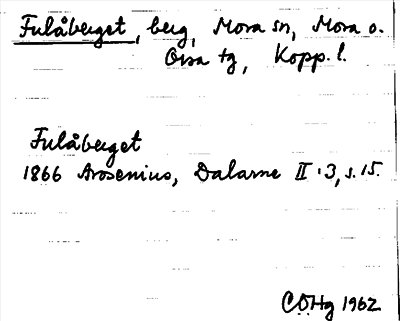 Fulåberget, berg, Mora sn, Mora o.
Orsa tg, Kopp. l.
Fulåberget
1866 Arosenius, Dalarne II:3, s. 15.
CÖHg 1962